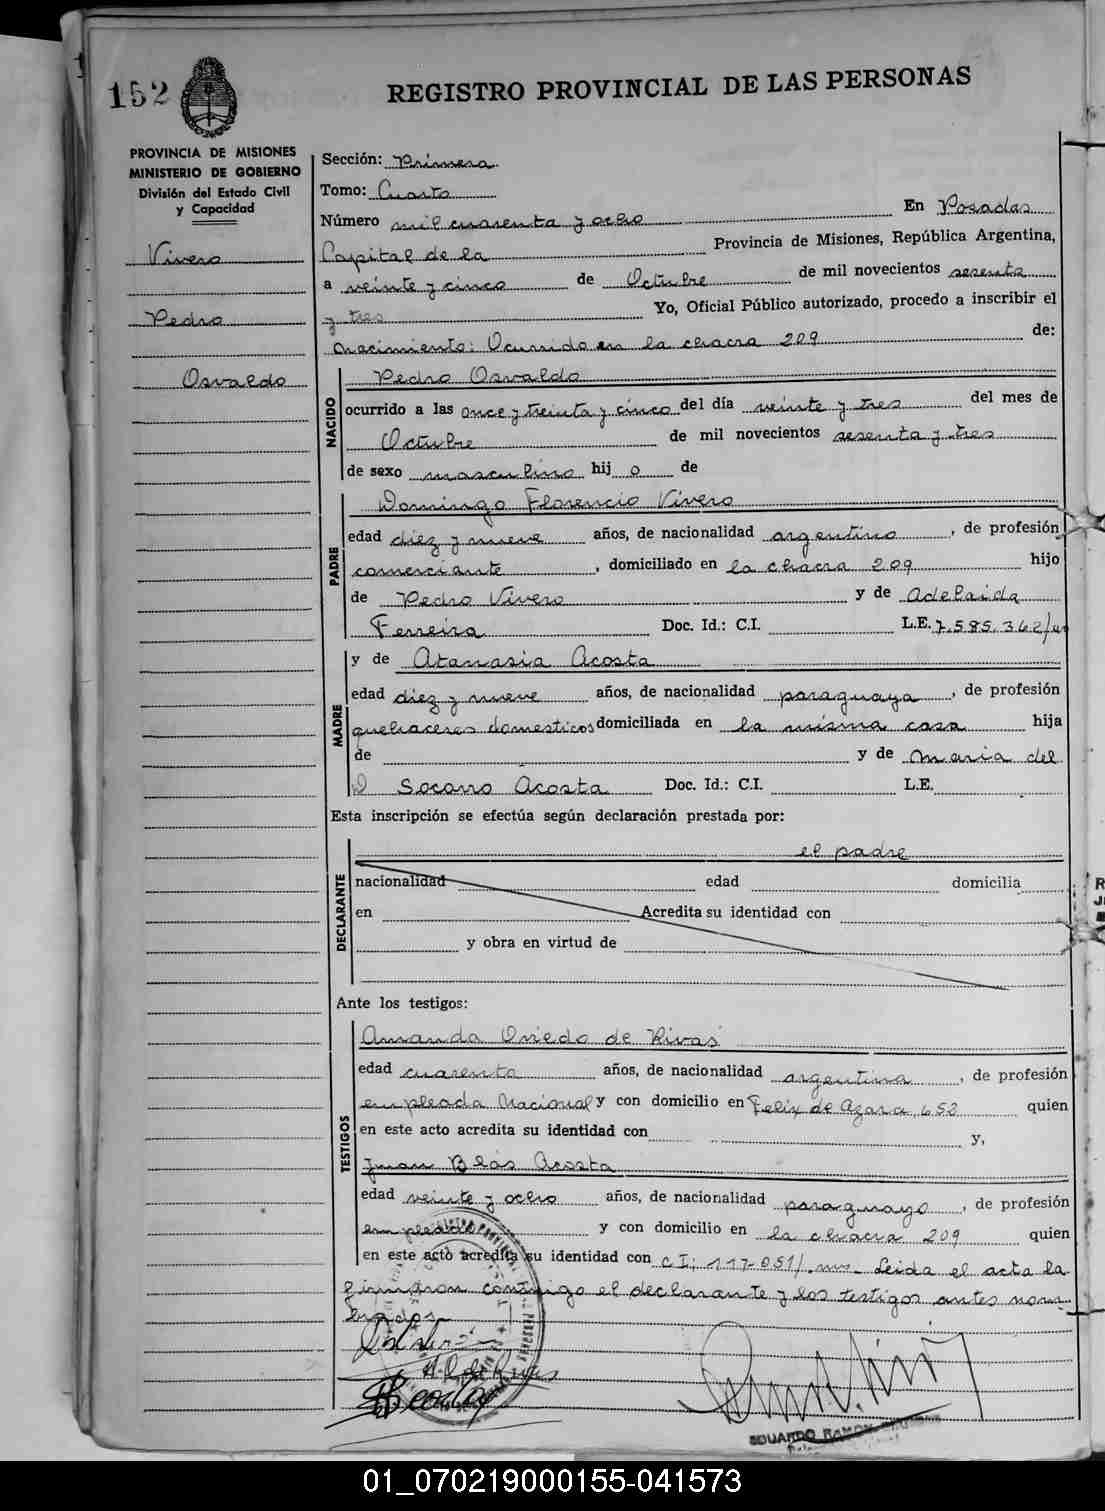 152
REGISTRO PROVINCIAL DE LAS PERSONAS
PROVINCIA DE MISIONES
MINISTERIO DE GOBIERNO
División del Estado Civil
y Capacidad
Vivero
Pedro
Osvaldo
Sección: Primera
Tomo: Cuarto
Número mil cuarenta y ocho En Posadas
Capital de la Provincia de Misiones, República Argentina,
a veinte y cinco de Octubre de mil novecientos sesenta
y tres Yo, Oficial Público autorizado, procedo a inscribir el
nacimiento: Ocurrido en la chacra 209 de:
NACIDO
Pedro Osvaldo
ocurrido a las once y treinta y cinco del día veinte y tres del mes de
Octubre de mil novecientos sesenta y tres
de sexo masculino hij o de
PADRE
Domingo Florencio Vivero
edad diez y nueve años, de nacionalidad argentino, de profesión
comerciante, domiciliado en la chacra 209 hijo
de Pedro Vivero y de Adelaida
Ferreira Doc. Id.: C.I. L.E. 7.585.362/
MADRE
y de Atanasia Acosta
edad diez y nueve años, de nacionalidad paraguaya, de profesión
quehaceres domesticos domiciliada en la misma casa hija
de y de Maria del
Socorro Acosta Doc. Id.: C.I. L.E.
Esta inscripción se efectúa según declaración prestada por:
DECLARANTE
el padre
nacionalidad edad domicilia
en Acredita su identidad con
y obra en virtud de
Ante los testigos:
TESTIGOS
Amanda Oviedo de Rivas
edad cuarenta años, de nacionalidad argentina, de profesión
empleada Nacional y con domicilio en Felix de Azara 653 quien
en este acto acredita su identidad con y,
Juan Blas Acosta
edad veinte y ocho años, de nacionalidad paraguayo, de profesión
empleado y con domicilio en la chacra 209 quien
en este acto acredita su identidad con C.I; 117-051/. Leida el acta la
firmaron conmigo el declarante y los testigos antes nom-
brados.
EDUARDO RAMON
01_070219000155-041573